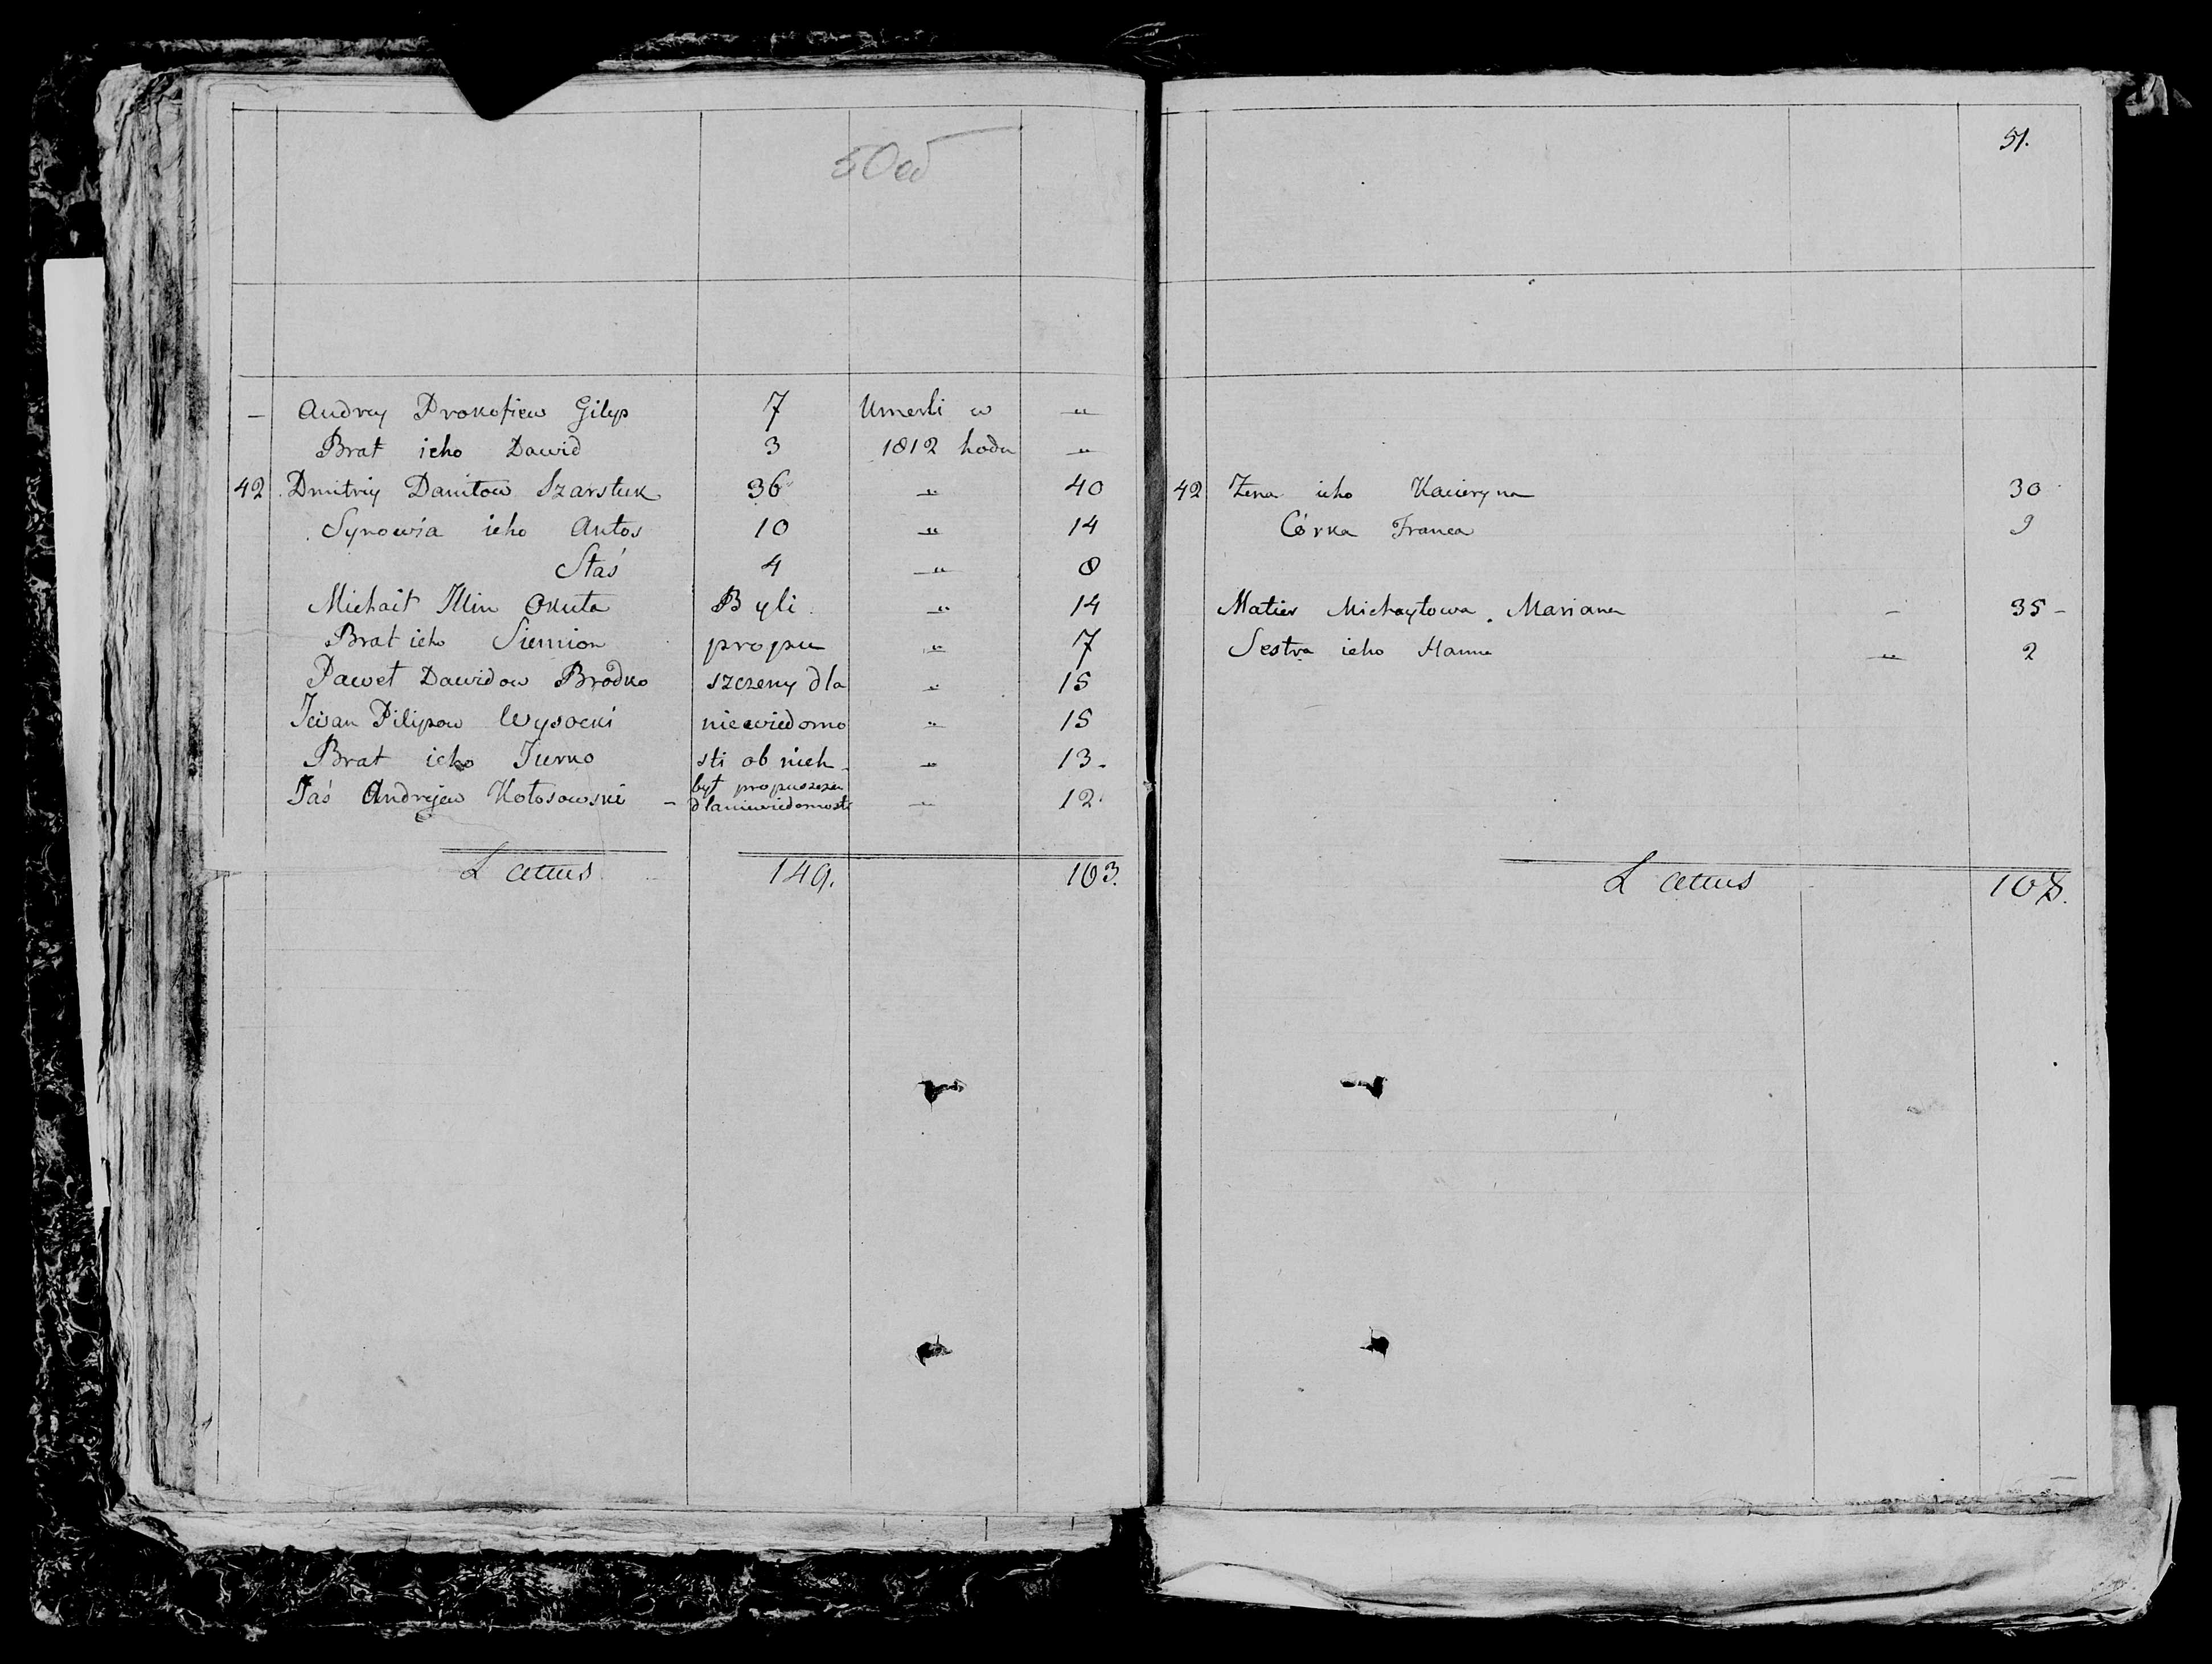 50об
— Andrey Prokofiew Gilip 7 Umerli w "
Brat icho Dawid 3 1812 hodu "
42 Dmitriy Daniłow Szarstuk 36 " 40
Synowia icho Antos 10 " 14
Staś 4 " 8
Michaił Illin Okuła Byli " 14
Brat icho Siemion propu " 7
Paweł Dawidow Brodko szczeny dla " 15
Iwan Pilipow Wysocki niewiedomo " 15
Brat icho Jurko sti ob nich " 13.
Jaś Andrejew Kołosowski — był propuszczen
dla niewiedomosti " 12.
Latus 149. 103.
51.
42 Żena icho Kacieryna 30
Córka Franca 9
Matier Michayłowa Mariana - 35 -
Sestra icho Hanna " 2
Latus 108.